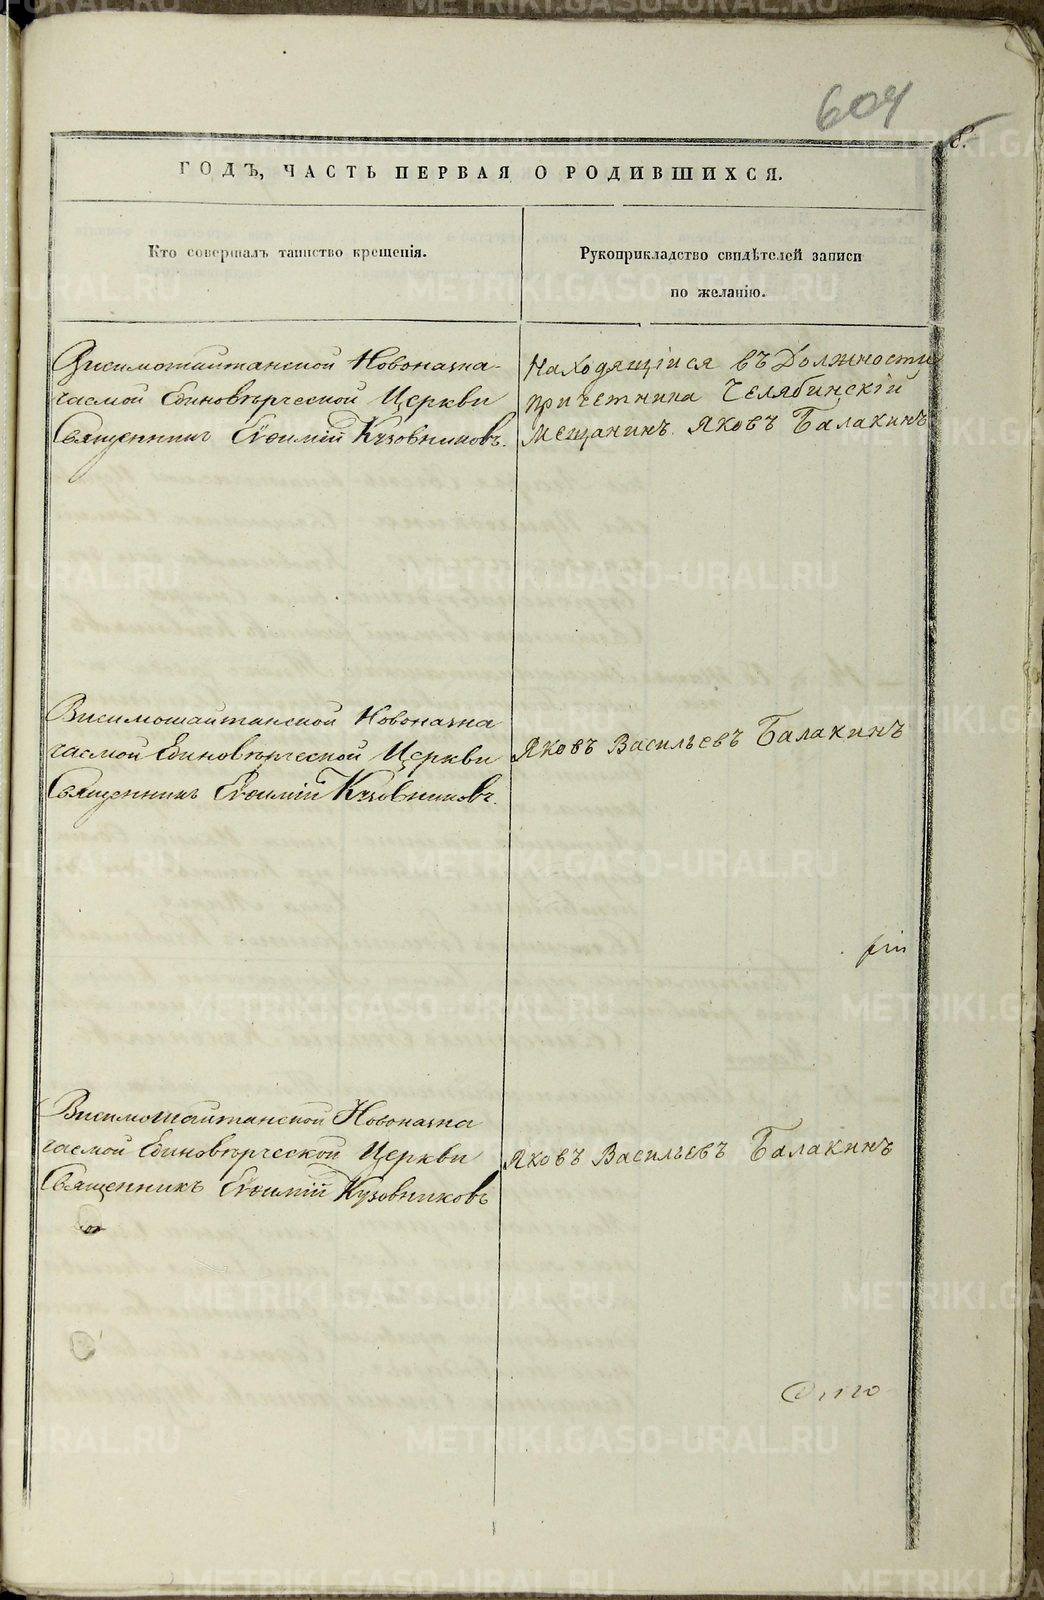 604
8.
ГОДЪ, ЧАСТЬ ПЕРВАЯ О РОДИВШИХСЯ.
Кто совершалъ таинство крещенія.
Рукоприкладство свидѣтелей записи
по желанію.
Висимошайтанской Новоназна-
чаемой Единовѣрческой Церкви
Священникъ Евѳимій Кузовниковъ.
Находящійся въ Должности
причетника Челябинскій
Мещанинъ Яковъ Балакинъ
Висимошайтанской Новоназна
чаемой Единовѣрческой Церкви
Священникъ Евѳимій Кузовниковъ.
Яковъ Васильевъ Балакинъ
Висимошайтанской Новоназна
чаемой Единовѣрческой Церкви
Священникъ Евѳимій Кузовниковъ
Яковъ Васильевъ Балакинъ
METRIKI.GASO-URAL.RU